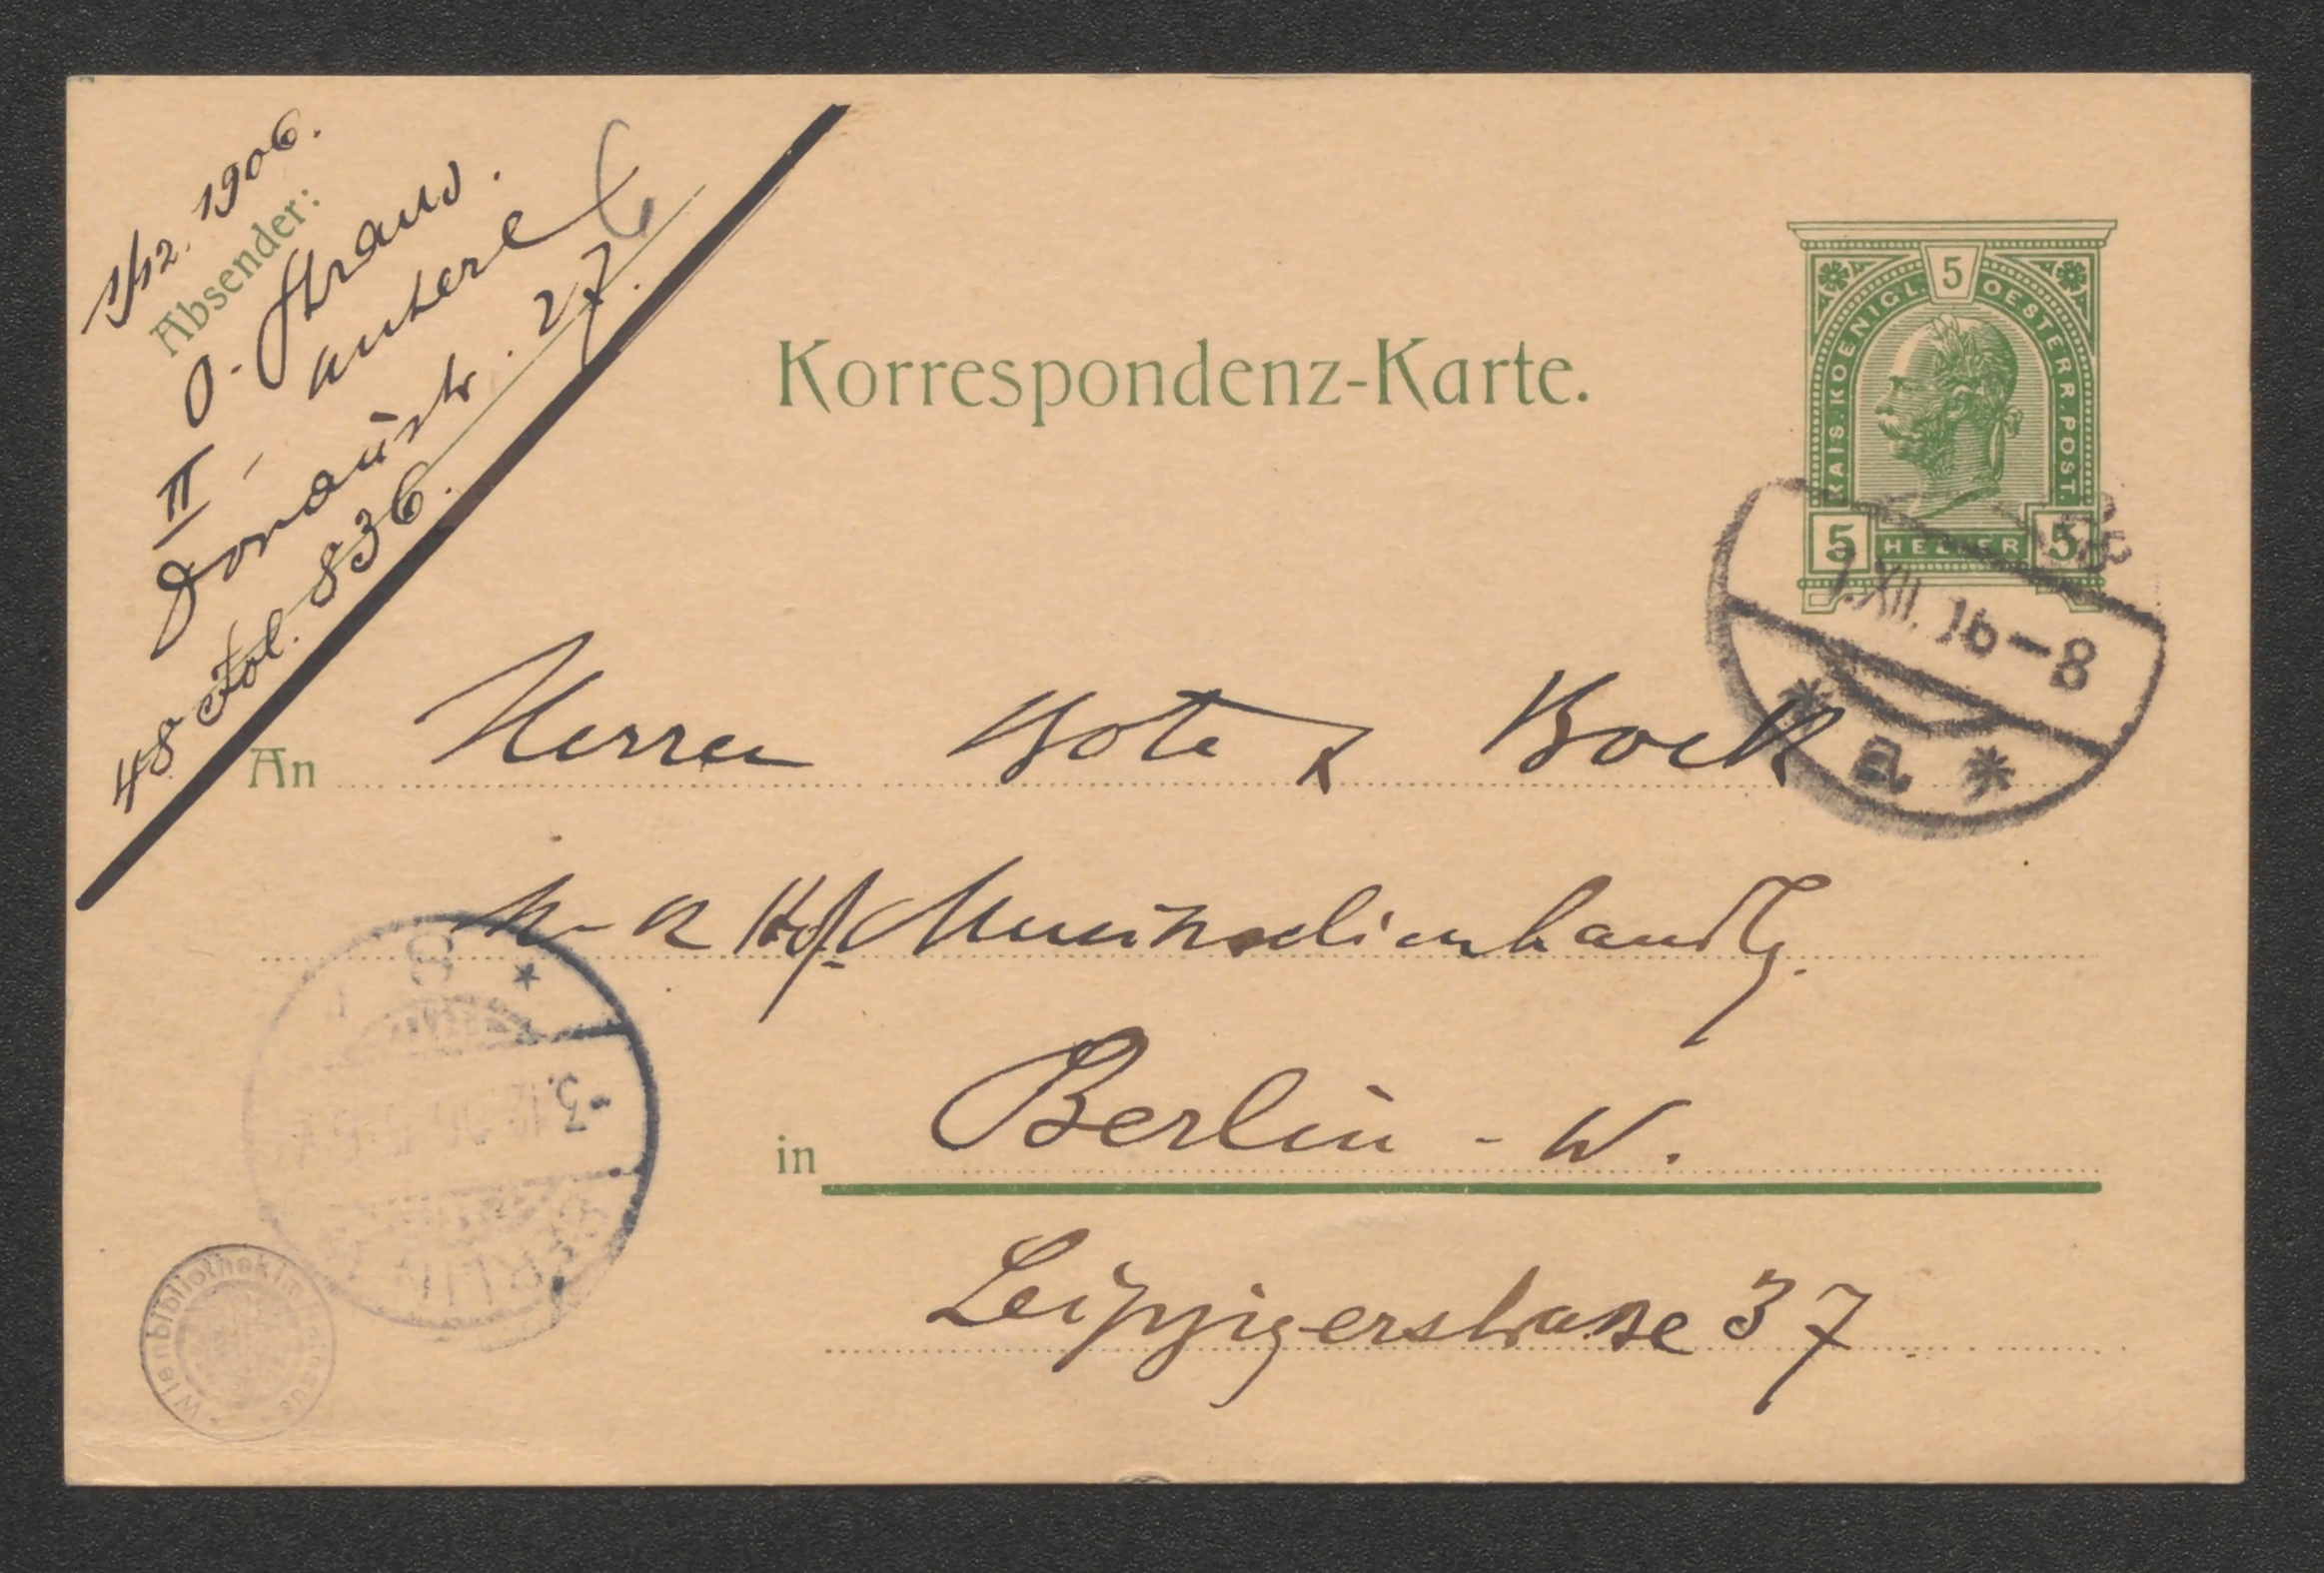 1/12. 1906.
Absender:
O. Straus.
II
untere
Donaustr. 27.
48 Fol. 836.
Korrespondenz-Karte.
5
KAIS. KOENIGL. OESTERR. POST.
5 HELLER 5
XII. 16-8
* a *
An Herren Bote & Bock
K. K Hof Musikalienhandlg.
in Berlin - W.
Leipzigerstrasse 37
8 *
3.12.06
BERLIN
Wienbibliothek im Rathaus